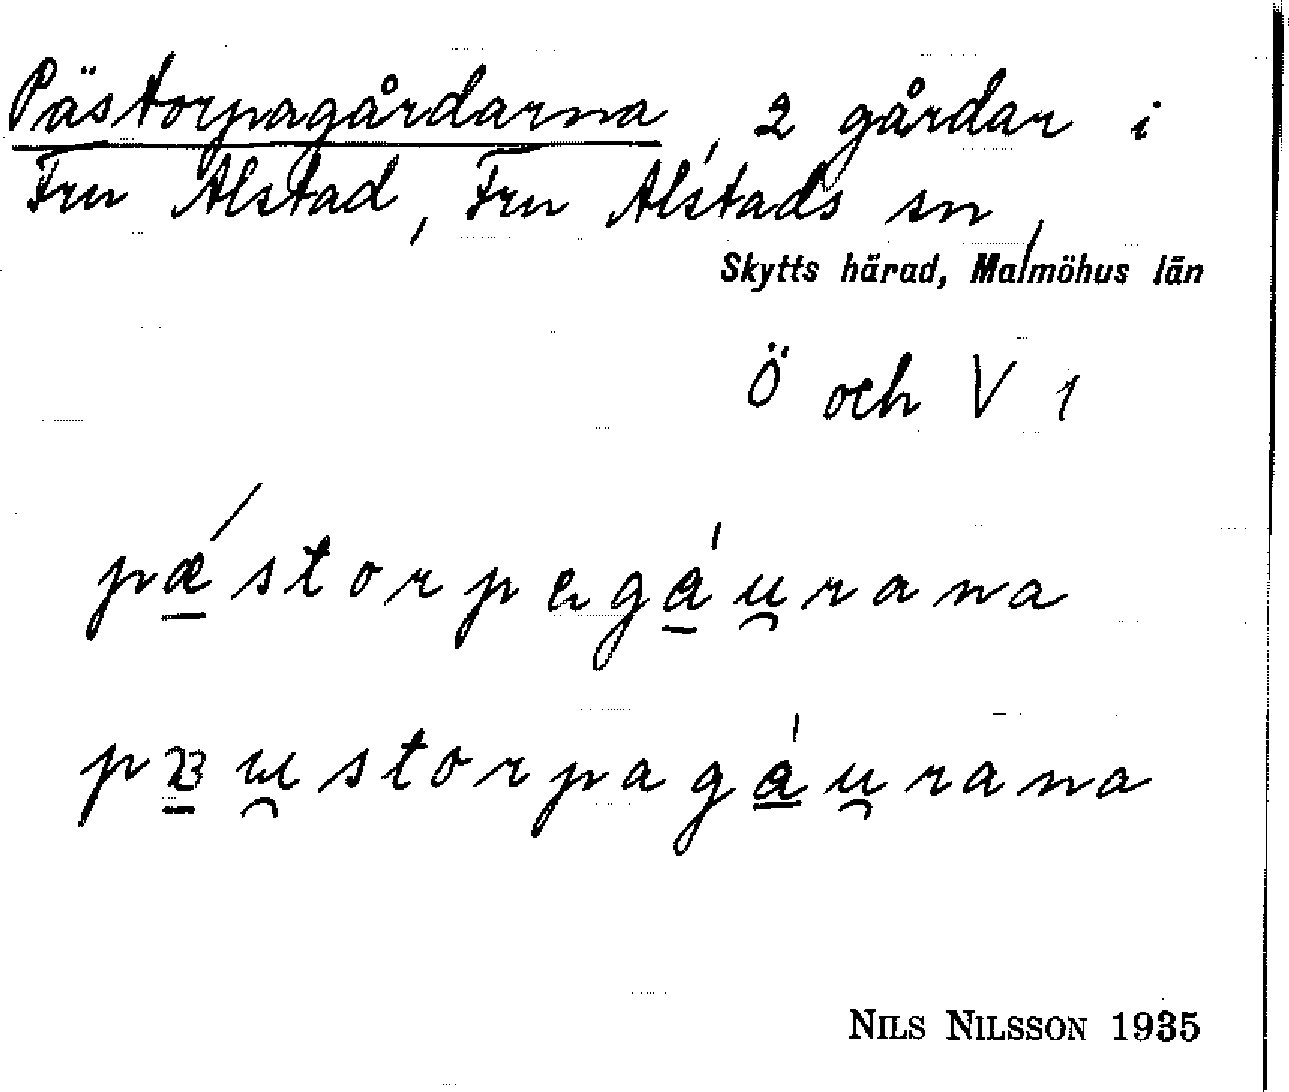 Pästorpagårdarna, 2 gårdar i
Fru Alstad, Fru Alstads sn,
Skytts härad, Malmöhus län
Ö och V 1
pǽstorpagáu̯rana
storpagáu̯rana
NILS NILSSON 1935